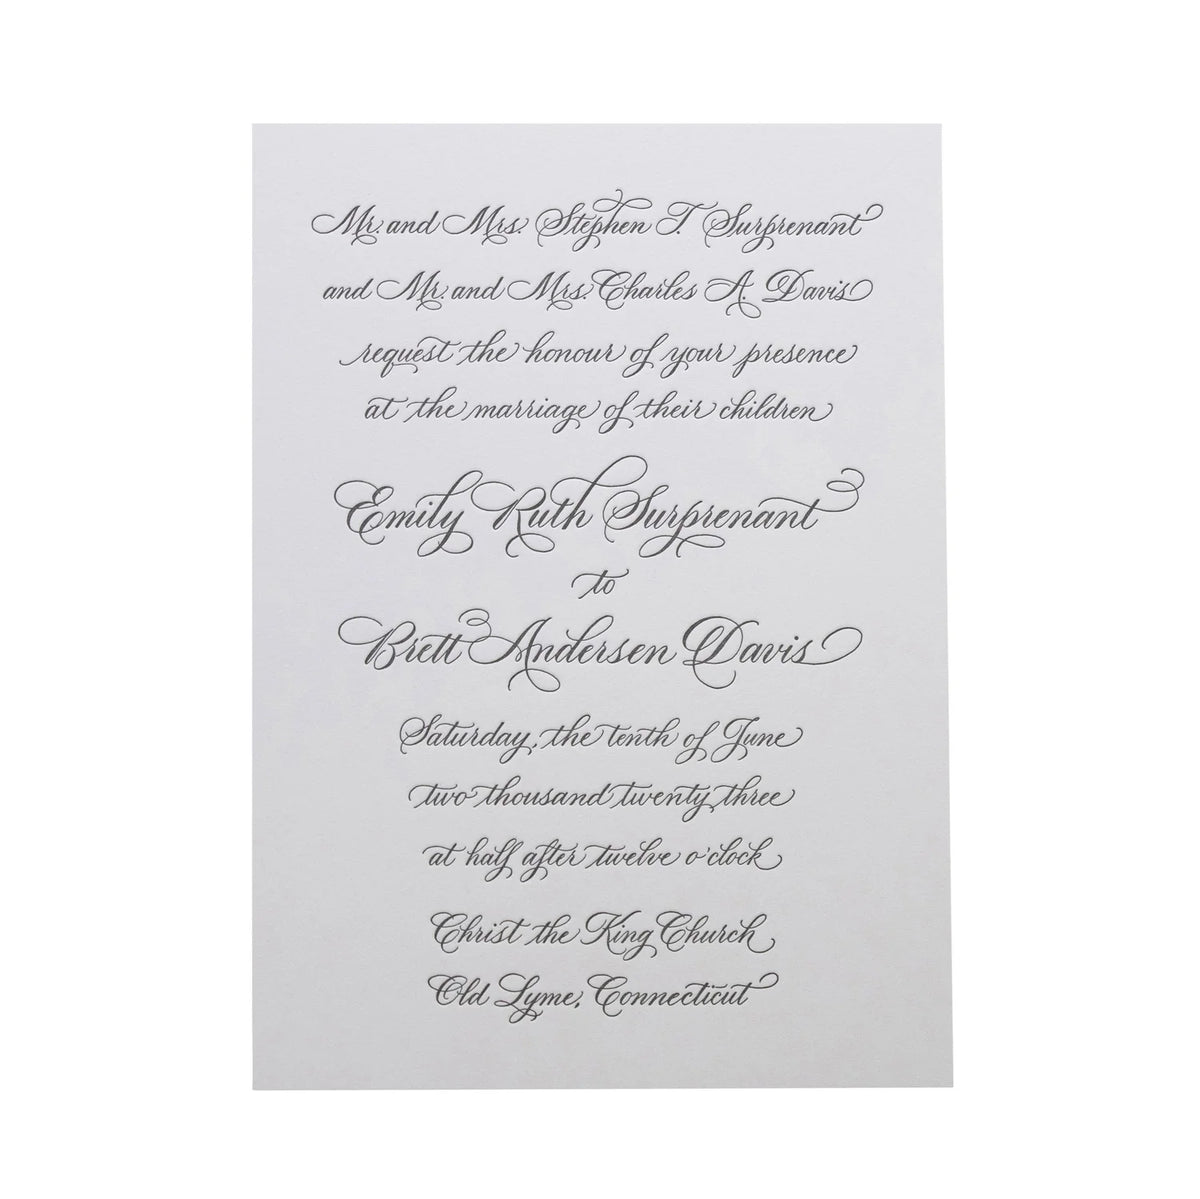 Mr. and Mrs. Stephen T. Surprenant
and Mr. and Mrs. Charles A. Davis
request the honour of your presence
at the marriage of their children
Emily Ruth Surprenant
to
Brett Andersen Davis
Saturday, the tenth of June
two thousand twenty three
at half after twelve o'clock
Christ the King Church
Old Lyme, Connecticut